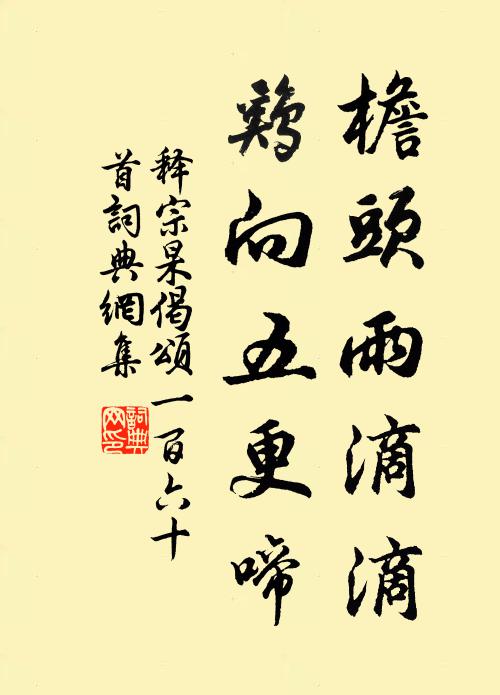 檐頭雨滴滴
鷄向五更啼
释宗杲偈頌一百六十
首詞典網集
詞典网印